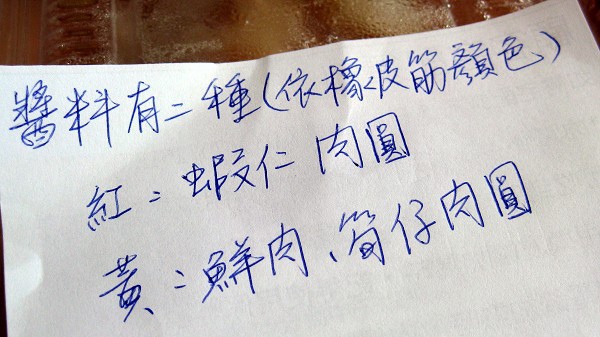 醬料有二種(依橡皮筋顏色)
紅:蝦仁肉圓
黃:鮮肉、筍仔肉圓